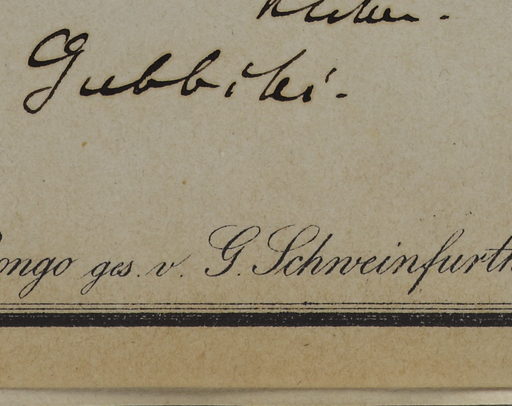 Gubbiki.
ongo ges. v. G. Schweinfurth